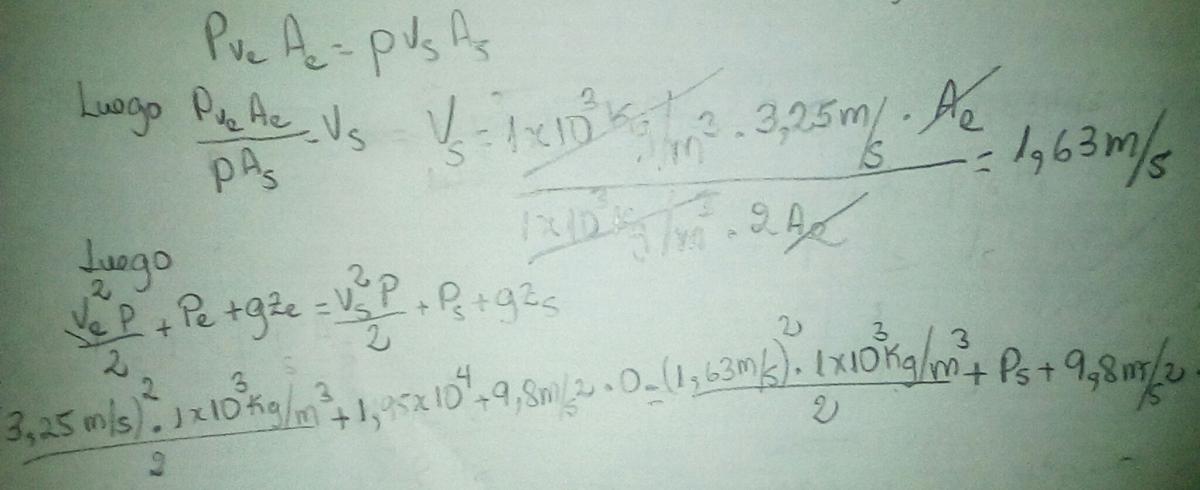 Pve Ae = ρVs As
Luego Pve Ae / ρAs = Vs Vs = 1x10³ Kg/m³ . 3,25 m/s . Ae / 1x10³ Kg/m³ . 2Ae = 1,63 m/s
Luego
Ve² ρ / 2 + Pe + gze = Vs² ρ / 2 + Ps + gzs
3,25 m/s)² . 1x10³ Kg/m³ / 2 + 1,95x10⁴ + 9,8 m/s² . 0 = (1,63 m/s)² . 1x10³ Kg/m³ / 2 + Ps + 9,8 m/s² .